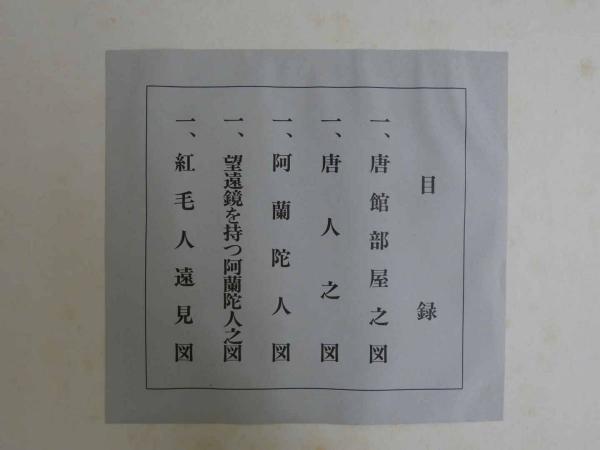 目録
一、唐館部屋之図
一、唐人之図
一、阿蘭陀人図
一、望遠鏡を持つ阿蘭陀人之図
一、紅毛人遠見図